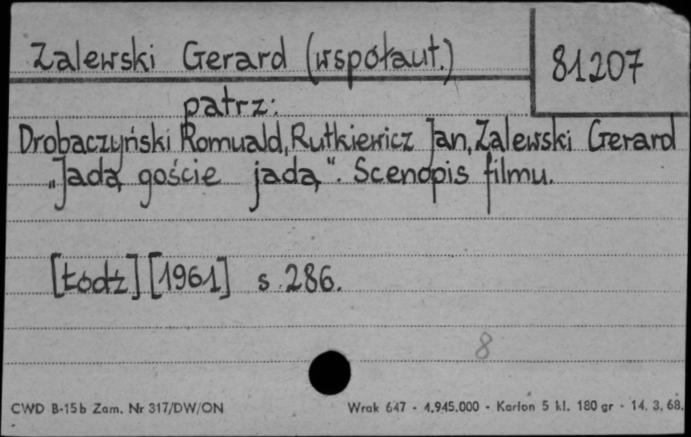 Zalewski Gerard (współaut.)
81207
patrz:
Drobaczyński Romuald, Rutkiewicz Jan, Zalewski Gerard
„Jadą goście jadą". Scenopis filmu.
[Łódź] [1961] s. 286.
8
CWD B-15b Zam. Nr 317/DW/ON
Wrak 647 - 4.945.000 - Karton 5 kl. 180 gr - 14. 3. 68.